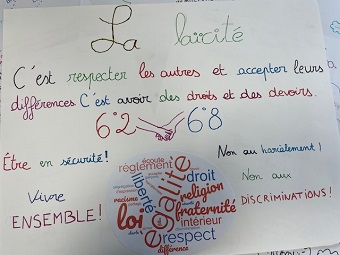 La laïcité
C'est respecter les autres et accepter leurs
différences C'est avoir des droits et des devoirs.
6°2 6°8
Être en sécurité!
Non au harcèlement!
Vivre
ENSEMBLE!
Non aux
DISCRIMINATIONS!
écoute
règlement
liberté
égalité
droit
racisme
religion
loi
fraternité
intérieur
respect
différence